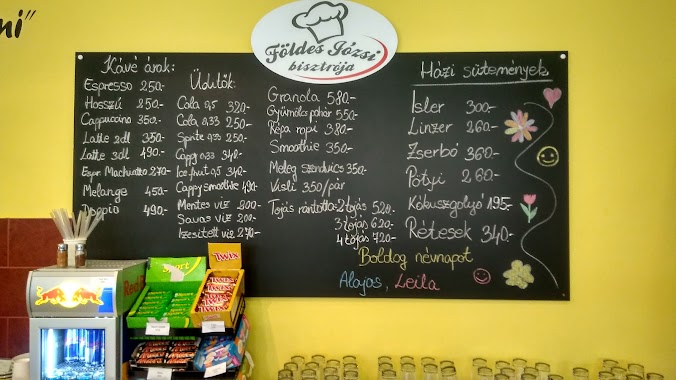 ni"
Földes Józsi
bisztrója
Kávé árak:
Espresso 250.-
Hosszú 250.-
Cappuccino 350.-
Latte 2dl 350.-
Latte 3dl 490.-
Espr. Macchiatto 270.-
Melange 450.-
Doppio 490.-
Üdítők:
Cola 0,5 320.-
Cola 0,33 250.-
Sprite 0,33 250.-
Cappy 0,33 340.-
Ice fruit 0,5 340.-
Cappy smoothie 490.-
Mentes víz 200.-
Savas víz 200.-
Ízesített víz 270.-
Granola 580.-
Gyümölcspohár 550.-
Répa ropi 380.-
Smoothie 350.-
Meleg szendvics 350.-
Virsli 350/pár
Tojás rántotta: 2 tojás 520.-
3 tojás 620.-
4 tojás 720.-
Házi sütemények
Isler 300.-
Linzer 260.-
Zserbó 360.-
Pötyi 260.-
Kókuszgolyó 195.-
Rétesek 340.-
Boldog névnapot
Alajos, Leila
TWIX
Sport
Red